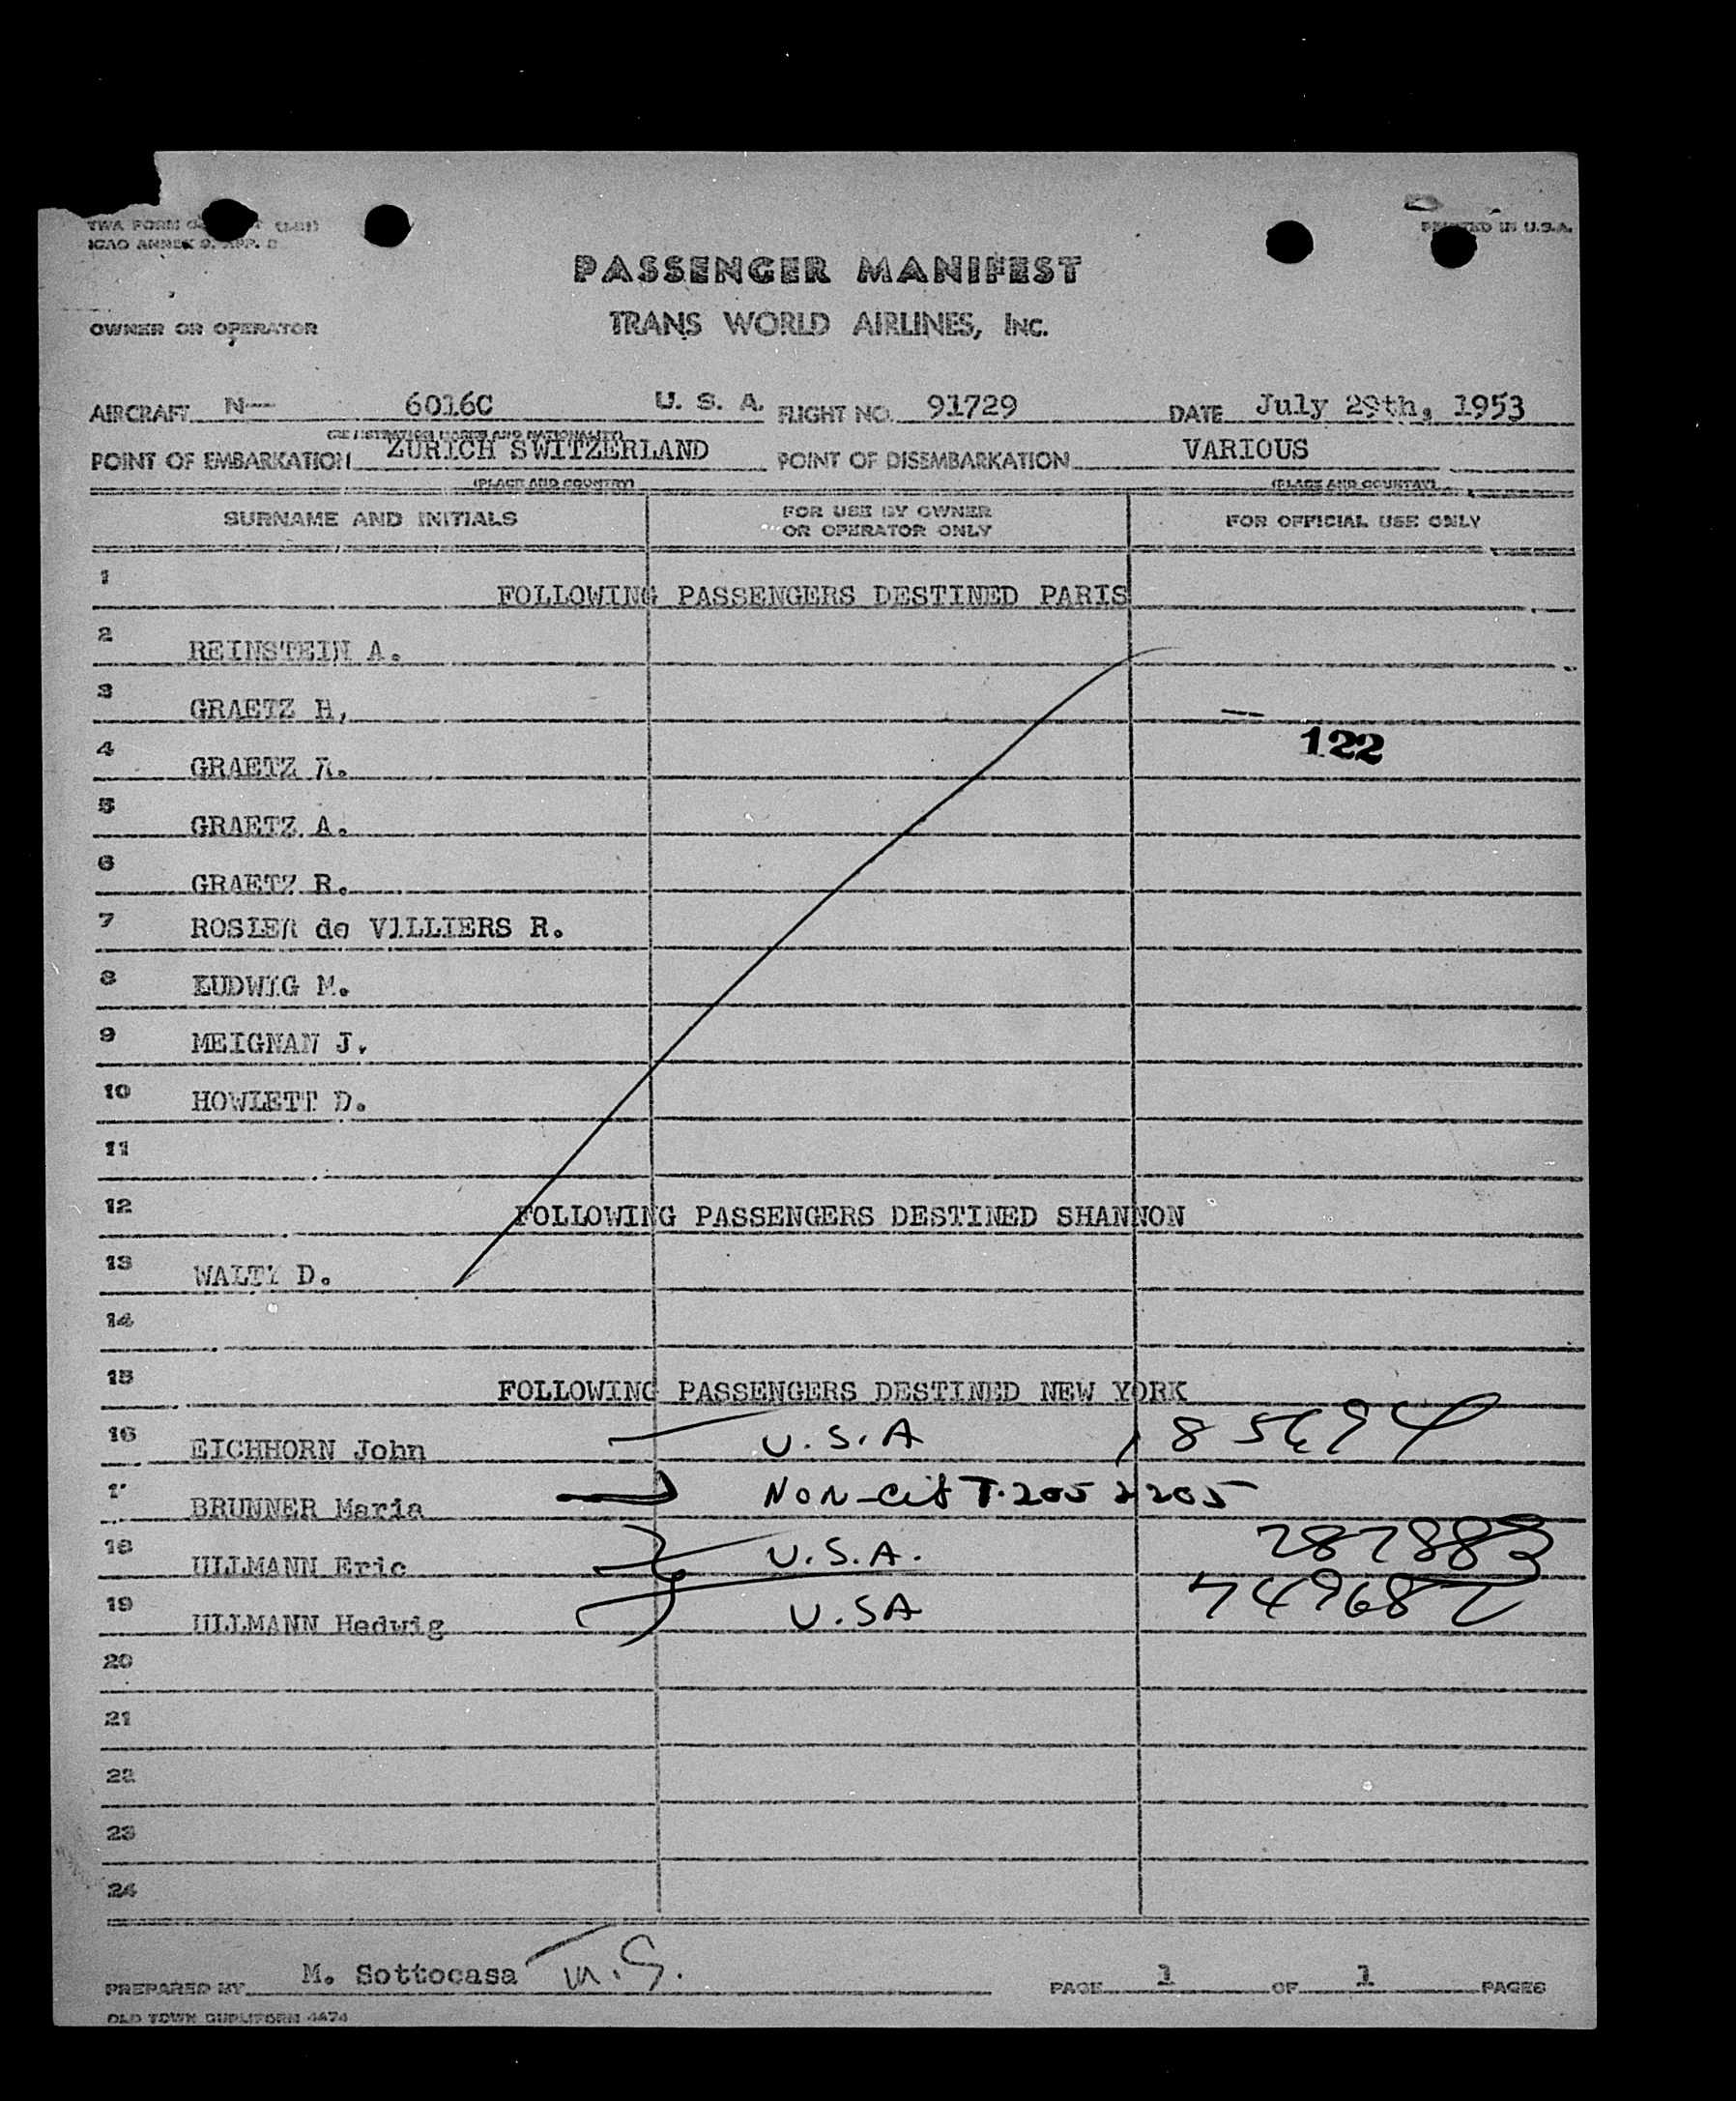 TWA FORM
ICAO ANNEX 9, APP.
PRINTED IN U.S.A.
PASSENGER MANIFEST
OWNER OR OPERATOR TRANS WORLD AIRLINES, INC.
AIRCRAFT N— 6016C U. S. A. FLIGHT NO. 91729 DATE July 29th, 1953
(REGISTRATION MARKS AND NATIONALITY)
POINT OF EMBARKATION ZURICH SWITZERLAND POINT OF DISEMBARKATION VARIOUS
(PLACE AND COUNTRY) (PLACE AND COUNTRY)
SURNAME AND INITIALS FOR USE BY OWNER OR OPERATOR ONLY FOR OFFICIAL USE ONLY
1 FOLLOWING PASSENGERS DESTINED PARIS
2 REINSTEIN A.
3 GRAETZ H.
122
4 GRAETZ
5 GRAETZ A.
6 GRAETZ R.
7 ROSIER de VILLIERS R.
8 LUDWIG M.
9 MEIGNAN J.
10 HOWLETT D.
11
12 FOLLOWING PASSENGERS DESTINED SHANNON
13 WALTY D.
14
15 FOLLOWING PASSENGERS DESTINED NEW YORK
16 EICHHORN John U.S.A
17 BRUNNER Maria NON-cit T.205 2205
18 ULLMANN Eric U.S.A. 287883
19 ULLMANN Hedwig U.SA 749682
20
21
22
23
24
PREPARED BY M. Sottocasa M.S. PAGE 1 OF 1 PAGES
OLD TOWN DUPLIFORM 4474